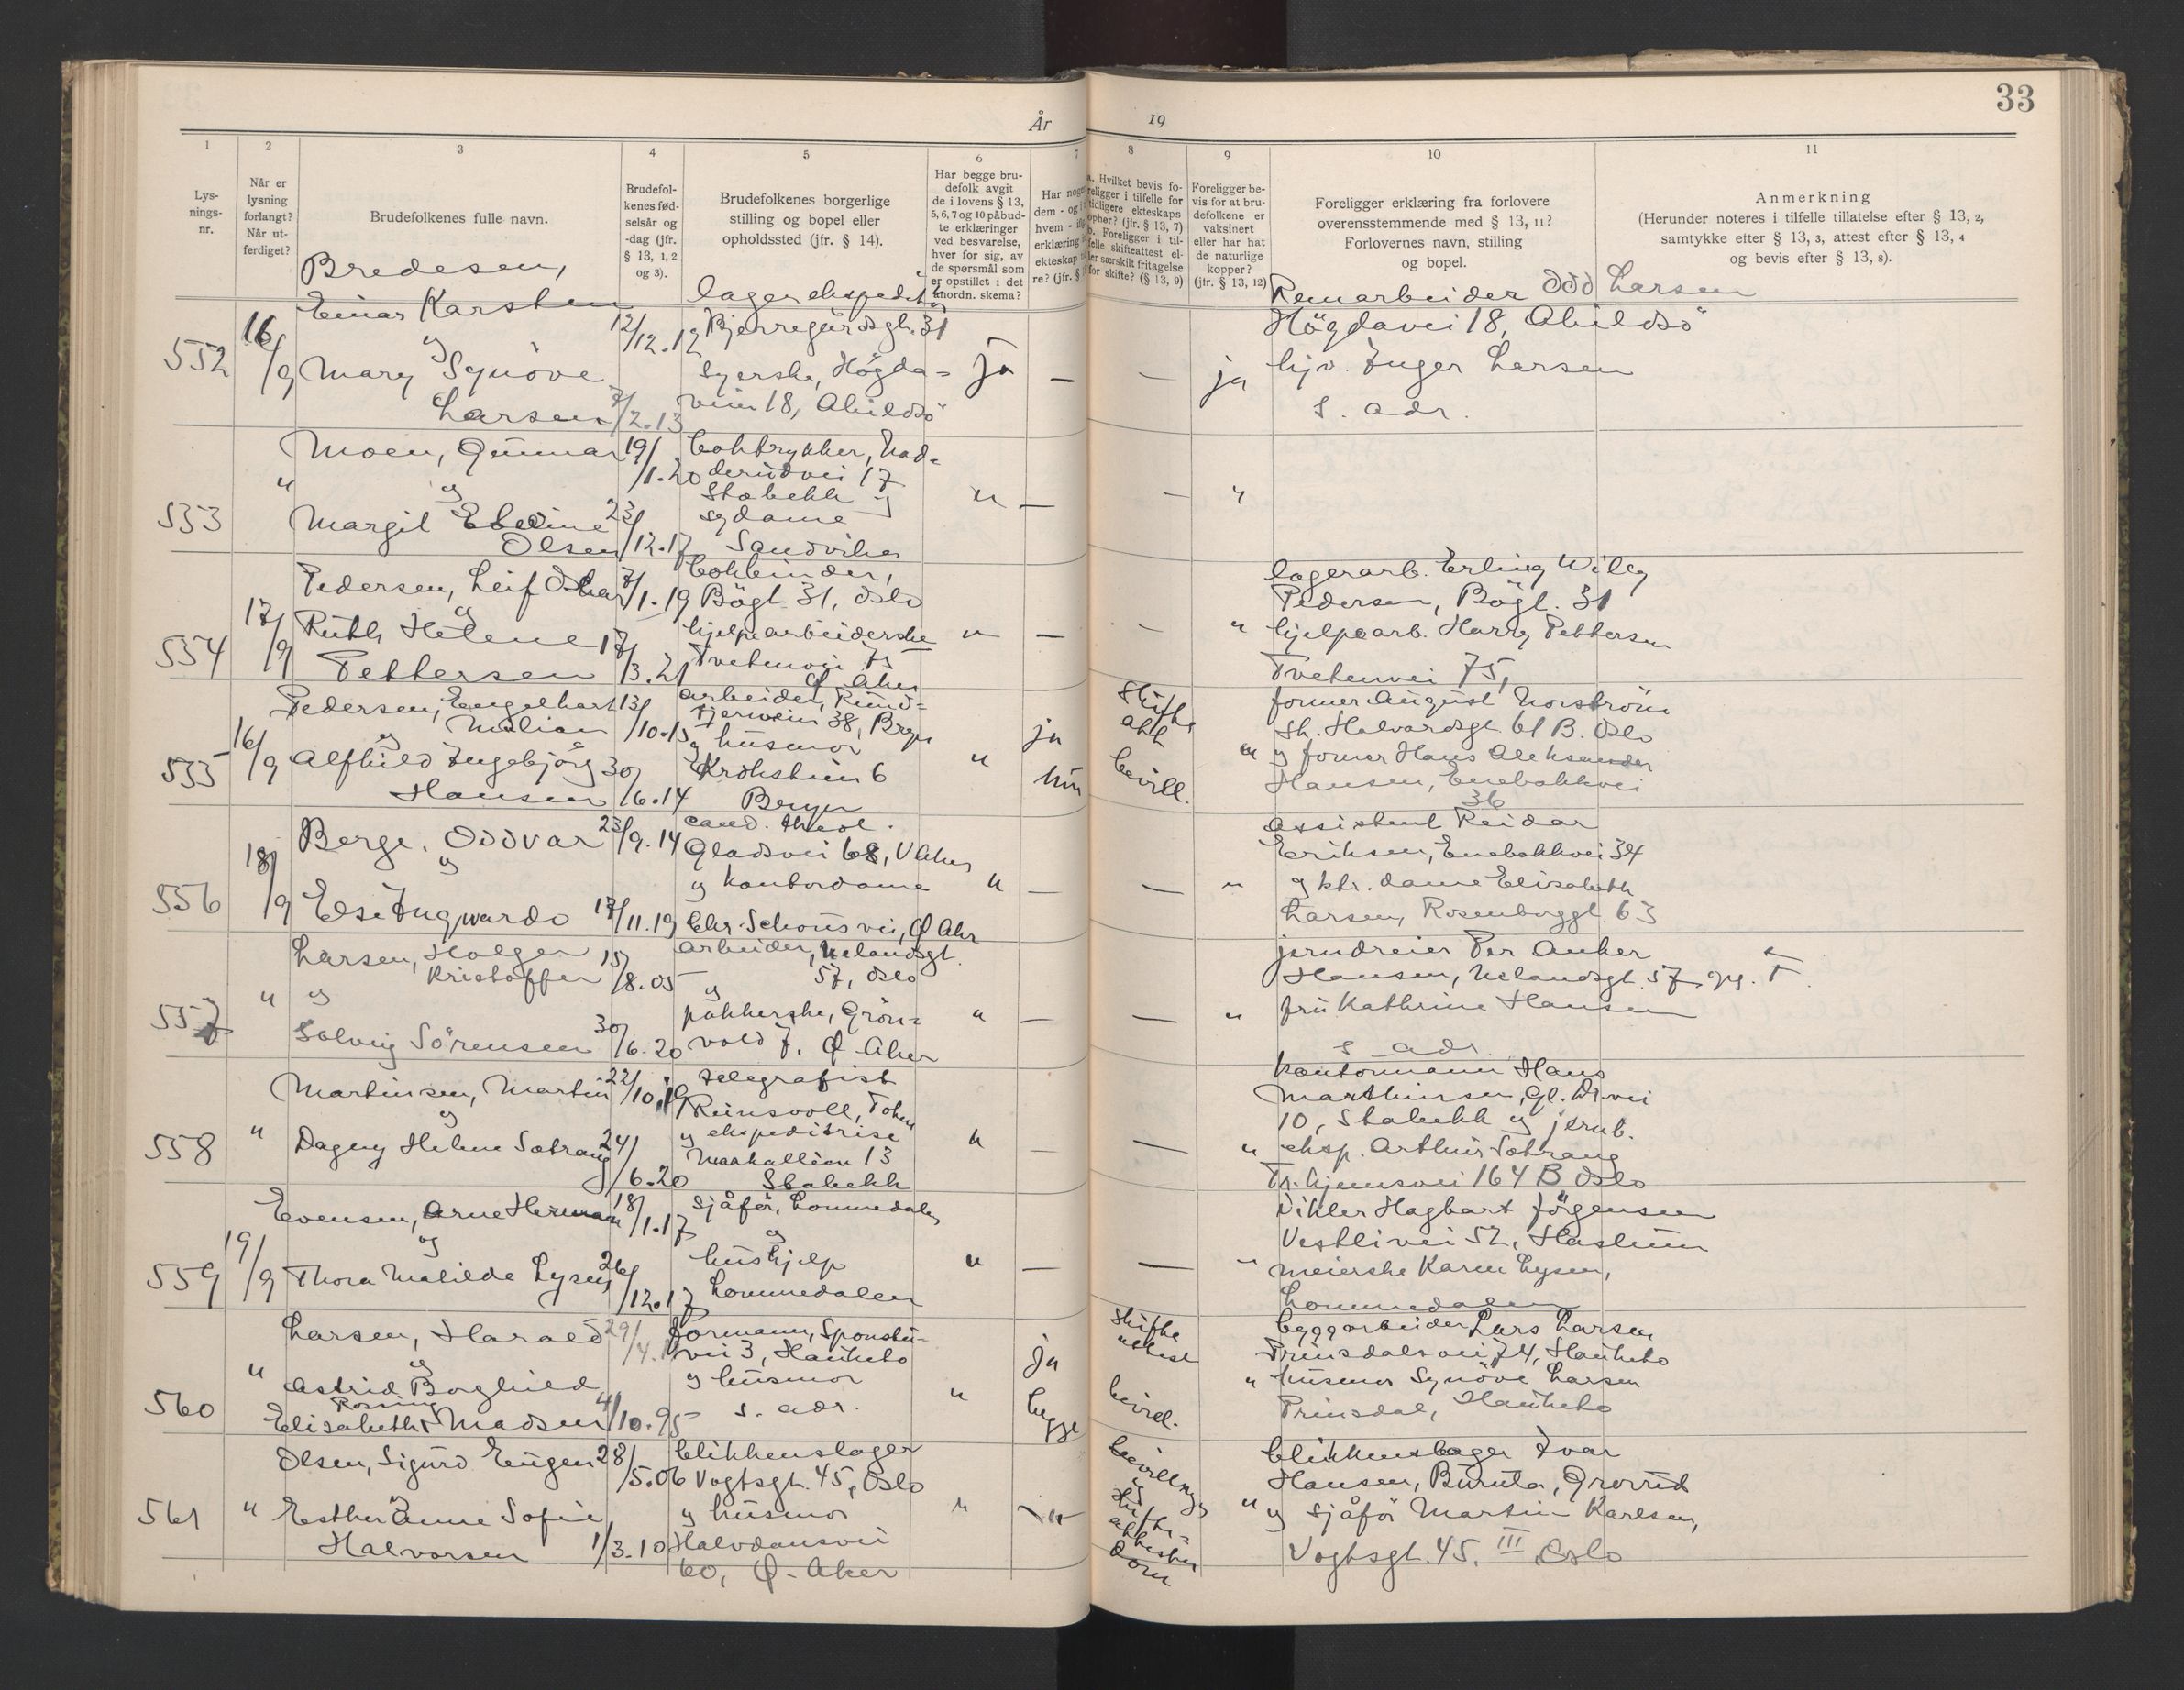 33
År 19
1 2 3 4 5 6 7 8 9 10 11
Lys-
nings-
nr.
Når er
lysning
forlangt?
Når ut-
ferdiget?
Brudefolkenes fulle navn.
Brudefol-
kenes fød-
selsår og
-dag (jfr.
§ 13, 1, 2
og 3).
Brudefolkenes borgerlige
stilling og bopel eller
opholdssted (jfr. § 14).
Har begge bru-
defolk avgit
de i lovens § 13,
5, 6, 7 og 10 påbud-
te erklæringer
ved besvarelse,
hver for sig, av
de spørsmål som
er opstillet i det
anordn. skema?
Har noge
dem - og i
hvem -
erklæring
ekteskap
re? (jfr. §
a. Hvilket bevis fo-
religger i tilfelle for
tidligere ekteskaps
ophør? (jfr. § 13, 7)
b. Foreligger i til-
felle skifteattest el-
ler særskilt fritagelse
for skifte? (§ 13, 9)
Foreligger be-
vis for at bru-
defolkene er
vaksinert
eller har hat
de naturlige
kopper?
(jfr. § 13, 12)
Foreligger erklæring fra forlovere
overensstemmende med § 13, 11?
Forlovernes navn, stilling
og bopel.
Anmerkning
(Herunder noteres i tilfelle tillatelse efter § 13, 2,
samtykke efter § 13, 3, attest efter § 13, 4
og bevis efter § 13, 8).
552
16/9
Bredesen,
Einar Karsten
og
Mary Synöve
Larsen
12/12.12
7/2.13
lagerekspeditör
Bjerregårdsgt. 31
Syerske, Högda-
veien 18, Abildsö
ja — — ja
Remarbeider Odd Larsen
Högdavei 18, Abildsö
hjv. Inger Larsen
s. adr.
553
"
Moen, Gunnar
og
Margit Eveline
Olsen
19/1.20
23/12.17
boktrykker, Nad-
derudvei 17
Stabekk og
sydame
Sandviken
" — — "
554
17/9
Pedersen, Leif Oskar
og
Ruth Helene
Pettersen
7/1.19
17/3.21
bokbinder,
Bögt 31, Oslo
hjelpearbeiderske
Tvetenvei 75
Ø. Aker
" — — "
lagerarb. Erling Willy
Pedersen, Bögt. 31
hjelpearb. Harry Pettersen
Tvetenvei 75,
555
16/9
Pedersen, Engelhart
Milian
og
Alfhild Ingebjörg
Hansen
13/10.15
30/6.14
arbeider, Rund-
tjernvein 38, Bryn
og husmor
Krokstien 6
Bergen
"
ja
hun
skifte
att
bevill.
"
former August Norström
St. Halvardsgt. 61 B. Oslo
og former Hans Aleksander
Hansen, Enebakkvei
36
556
18/9
Berge, Oddvar
og
Else Ingwardo
23/9.14
17/11.19
cand. theol.
Gladsvei 68, V Aker
og kontordame
Chr. Schous vei, Ø Aker
" — — "
assistent Reidar
Eriksen, Enebakkvei 34
og ktr. dame Elisabeth
Larsen, Rosenborggt. 63
557
"
Larsen, Holger
Kristoffer
og
Solveig Sörensen
15/8.05
30/6.20
arbeider, Uelandsgt.
57, Oslo
og
pakkerske, Grön-
vold 7, Ø Aker
" — — "
jerndreier Per Anker
Hansen, Uelandsgt. 57 og
fru Kathrine Hansen
s adr.
558
"
Martinsen, Martin
og
Dagny Helene Sotrang
22/10.19
24/6.20
telegrafist
Reinsvoll, Toten
og ekspeditrise
Markalléen 13
Stabekk
" — — "
kontormann Hans
Marthinsen, Gl. Dr.vei
10, Stabekk og jernb.
eksp. Arthur Sotrang
Tr.hjemsvei 164 B Oslo
559
19/9
Evensen, Arne Herman
og
Thora Matilde Lysen
18/1.17
26/12.17
sjåför, Lommedalen
og
hushjelp
Lommedalen
" — — "
Vikler Hagbart Jörgensen
Vestlivei 52, Haslum
meierske Karen Lysen,
Lommedalen
560
"
Larsen, Harald
og
Astrid Borghild
Rosning
Elisabeth Madsen
29/4.
4/10.95
formann,
vei 3, Hauketo
og husmor
s. adr.
"
ja
begge
skifte
attest
bevill.
"
byggarbeider Lars Larsen
Prinsdalsvei 74, Hauketo
husmor Synöve Larsen
Prinsdal, Hauketo
561
"
Olsen, Sigurd Eugen
og
Esther Anne Sofie
Halvorsen
28/5.06
1/3.10
blikkenslager
Vogtsgt. 45, Oslo
og husmor
Halvdansvei
60, Ø. Aker
" "
bevillning
og
skifte-
attester
dom
"
blikkenslager Ivar
Hansen, Buruta, Grorud
og sjåför Martin Karlsen,
Vogtsgt. 45. III Oslo